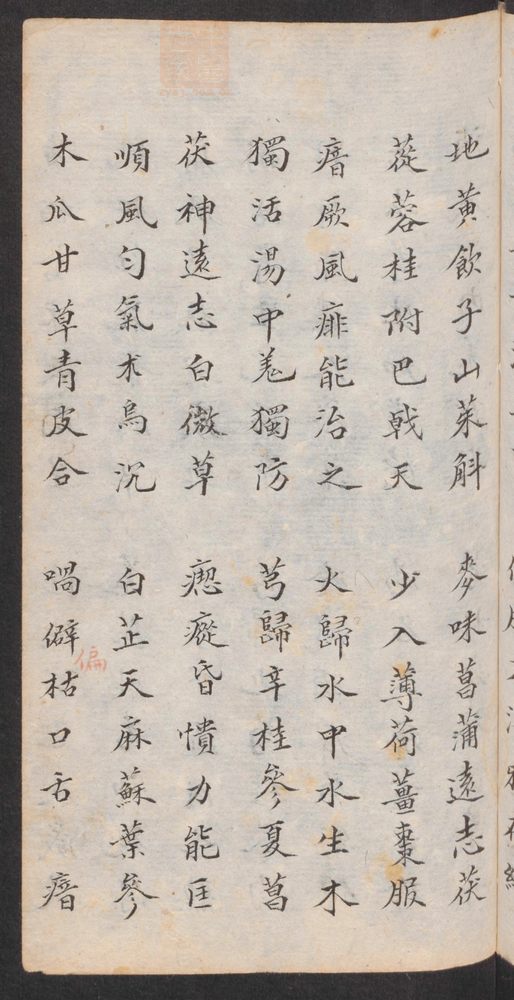 地黃飲子山茱斛　麥味菖蒲遠志茯
蓯蓉桂附巴戟天　少入薄荷薑棗服
瘖厥風痱能治之　火歸水中水生木
獨活湯中羌獨防　芎歸辛桂參夏菖
茯神遠志白薇草　瘛瘲昏憒力能匡
順風勻氣朮烏沉　白芷天麻蘇葉參
木瓜甘草青皮合　喎僻枯口舌瘖
偏